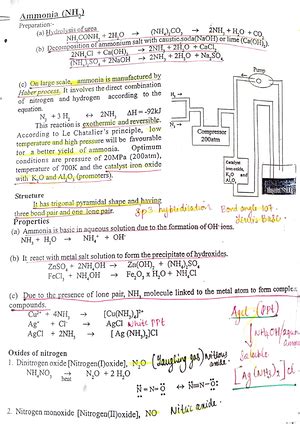 Ammonia (NH₃)
Preparation:-
(a) Hydrolysis of urea
NH₂CONH₂ + 2H₂O → (NH₄)₂CO₃ → 2NH₃ + H₂O + CO₂
(b) Decomposition of ammonium salt with caustic soda(NaOH) or lime (Ca(OH)₂.
2NH₄Cl + Ca(OH)₂ → 2NH₃ + 2H₂O + CaCl₂
(NH₄)₂SO₄ + 2NaOH → 2NH₃ + 2H₂O + Na₂SO₄
(c) On large scale, ammonia is manufactured by
Haber process. It involves the direct combination
of nitrogen and hydrogen according to the
equation.
N₂ + 3 H₂ ↔ 2NH₃ ΔH = -92kJ
This reaction is exothermic and reversible.
According to Le Chatalier's principle, low
temperature and high pressure will be favourable
for a better yield of ammonia. Optimum
conditions are pressure of 20MPa (200atm),
temperature of 700K and the catalyst iron oxide
with K₂O and Al₂O₃ (promoters).
Pump
N₂
Compressor
200atm
Catalyst
iron oxide,
K₂O and
Al₂O₃
Structure
It has trigonal pyramidal shape and having
three bond pair and one lone pair.
Sp3 hybridisation Bond angle 107.
Lewis Base.
Properties
(a) Ammonia is basic in aqueous solution due to the formation of OH⁻ ions.
NH₃ + H₂O → NH₄⁺ + OH⁻
(b) It react with metal salt solution to form the precipitate of hydroxides.
ZnSO₄ + 2NH₄OH → Zn(OH)₂ + (NH₄)₂SO₄
FeCl₃ + NH₄OH → Fe₂O₃ x H₂O + NH₄Cl
(c) Due to the presence of lone pair, NH₃ molecule linked to the metal atom to form complex
compounds.
Cu²⁺ + 4NH₃ → [Cu(NH₃)₄]²⁺
Ag⁺ + Cl⁻ → AgCl White PPT
AgCl + 2NH₃ → [Ag (NH₃)₂]Cl
AgCl (PPT)
↓ NH₄OH/
Soluble
[Ag(NH₃)₂]Cl
Oxides of nitrogen
1. Dinitrogen oxide [Nitrogen(I)oxide], N₂O (Laughing gas) nitrous
oxide.
NH₄NO₃ → N₂O + 2H₂O
heat
2. Nitrogen monoxide [Nitrogen(II)oxide], NO Nitric oxide.